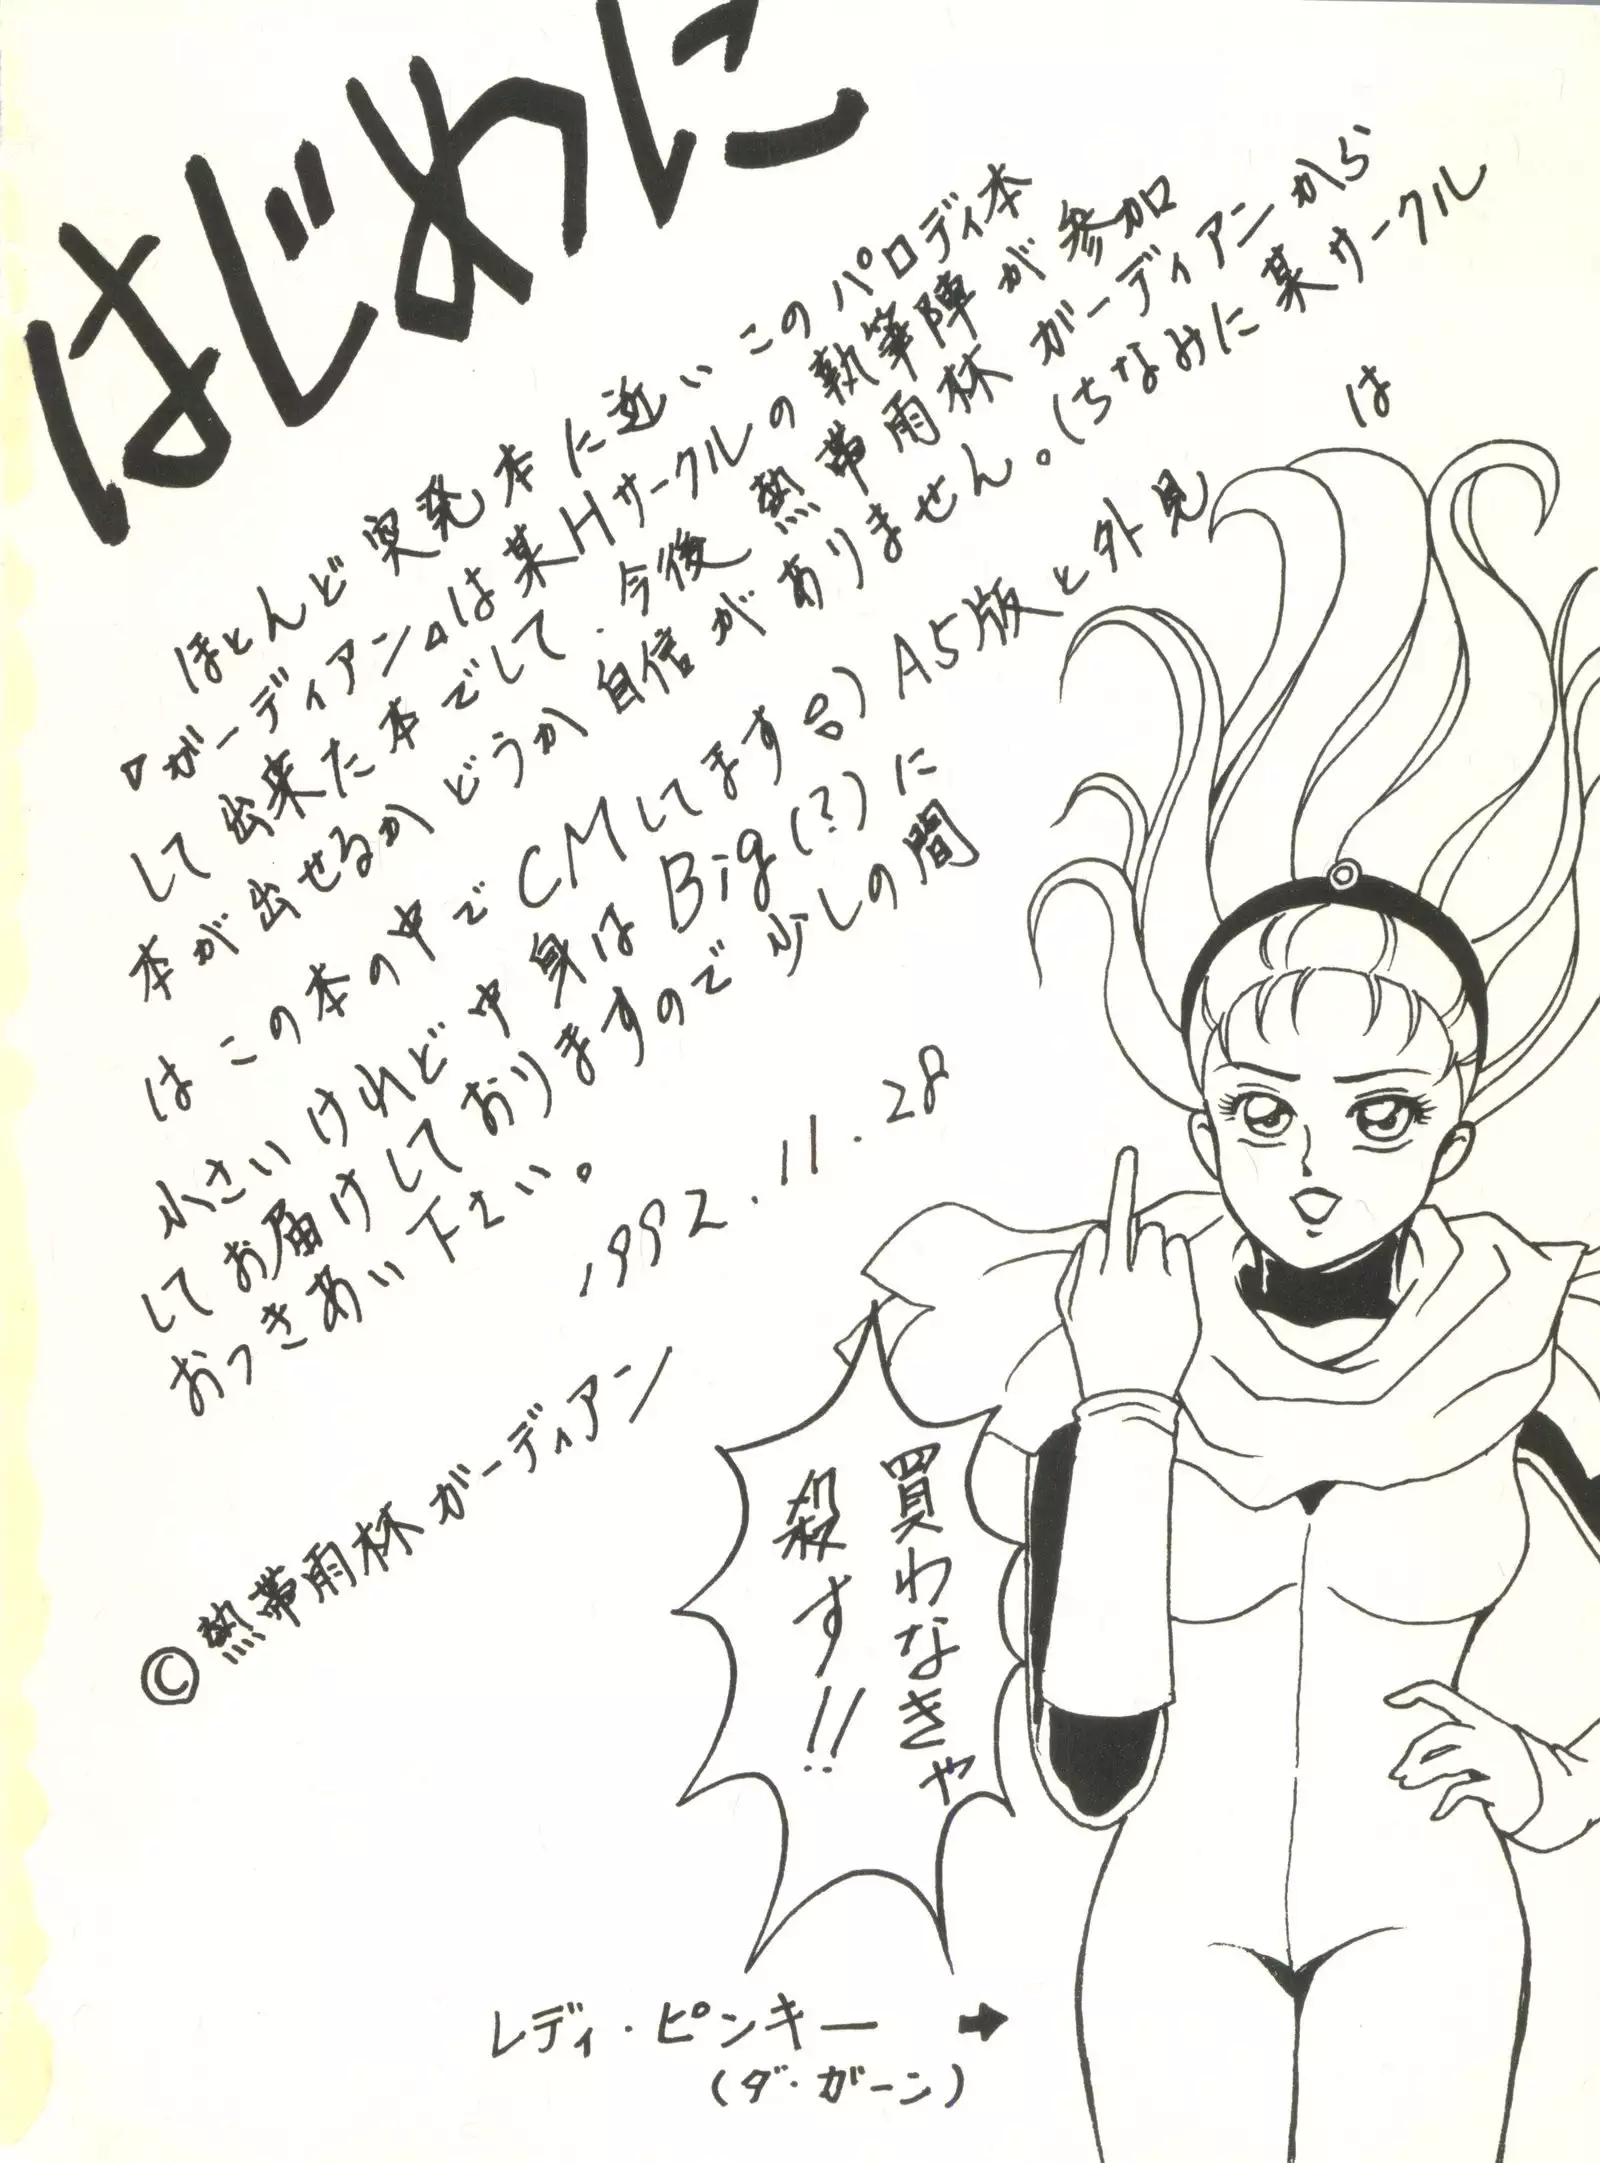 はじめに
ほとんど突発本に近いこのパロディ本
『ガーディアン』は某Hサークルの執筆陣が参加
して出来た本でして、今後熱帯雨林ガーディアンから
本が出せるかどうか自信がありません。(ちなみに某サークル
は
はこの本の中でCMしてます呂)A5版と外見
小さいけれど中身はBig(?)に
してお届けしておりますので少しの間
おつきあい下さい。
1992.11.28
©熱帯雨林ガーディアン
買わなきゃ
殺す!!
レディ・ピンキー →
(ダ・ガーン)